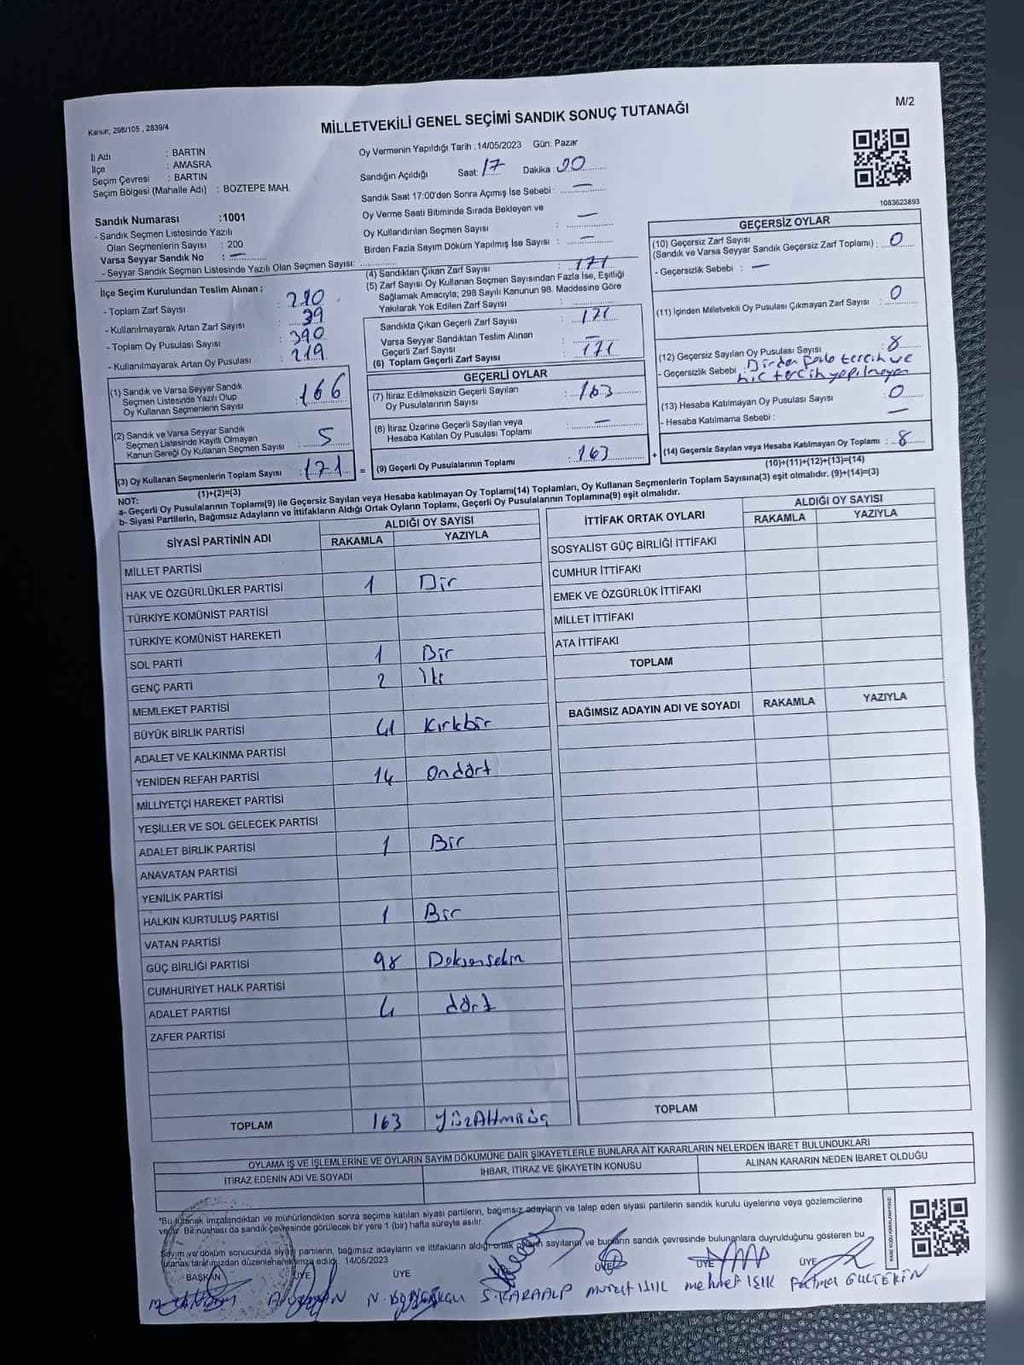 M/2
Kanun; 298/105 , 2839/4
MİLLETVEKİLİ GENEL SEÇİMİ SANDIK SONUÇ TUTANAĞI
İl Adı : BARTIN
İlçe : AMASRA
Seçim Çevresi : BARTIN
Seçim Bölgesi (Mahalle Adı) : BOZTEPE MAH.
Oy Vermenin Yapıldığı Tarih :14/05/2023 Gün: Pazar
Sandığın Açıldığı Saat: 17 Dakika: 20
Sandık Saat 17:00'den Sonra Açımış İse Sebebi : —
Oy Verme Saati Bitiminde Sırada Bekleyen ve
Oy Kullandırılan Seçmen Sayısı : —
Birden Fazla Sayım Döküm Yapılmış İse Sayısı : —
1083623893
Sandık Numarası :1001
- Sandık Seçmen Listesinde Yazılı
Olan Seçmenlerin Sayısı : 200
Varsa Seyyar Sandık No : —
- Seyyar Sandık Seçmen Listesinde Yazılı Olan Seçmen Sayısı:
İlçe Seçim Kurulundan Teslim Alınan ;
- Toplam Zarf Sayısı : 210
- Kullanılmayarak Artan Zarf Sayısı : 39
- Toplam Oy Pusulası Sayısı : 390
- Kullanılmayarak Artan Oy Pusulası : 219
(1) Sandık ve Varsa Seyyar Sandık
Seçmen Listesinde Yazılı Olup
Oy Kullanan Seçmenlerin Sayısı : 166
(2) Sandık ve Varsa Seyyar Sandık
Seçmen Listesinde Kayıtlı Olmayan
Kanun Gereği Oy Kullanan Seçmen Sayısı : 5
(3) Oy Kullanan Seçmenlerin Toplam Sayısı : 171
(1)+(2)=(3)
(4) Sandıktan Çıkan Zarf Sayısı : 171
(5) Zarf Sayısı Oy Kullanan Seçmen Sayısından Fazla İse, Eşitliği
Sağlamak Amacıyla; 298 Sayılı Kanunun 98. Maddesine Göre
Yakılarak Yok Edilen Zarf Sayısı :
Sandıkta Çıkan Geçerli Zarf Sayısı : 171
Varsa Seyyar Sandıktan Teslim Alınan
Geçerli Zarf Sayısı :
(6) Toplam Geçerli Zarf Sayısı : 171
GEÇERLİ OYLAR
(7) İtiraz Edilmeksizin Geçerli Sayılan
Oy Pusulalarının Sayısı : 163
(8) İtiraz Üzerine Geçerli Sayılan veya
Hesaba Katılan Oy Pusulası Toplamı : —
= (9) Geçerli Oy Pusulalarının Toplamı : 163
GEÇERSİZ OYLAR
(10) Geçersiz Zarf Sayısı
(Sandık ve Varsa Seyyar Sandık Geçersiz Zarf Toplamı) : 0
- Geçersizlik Sebebi : —
(11) İçinden Milletvekili Oy Pusulası Çıkmayan Zarf Sayısı : 0
(12) Geçersiz Sayılan Oy Pusulası Sayısı : 8
- Geçersizlik Sebebi : Birden fazla tercih ve
hiç tercih yapılmayan
(13) Hesaba Katılmayan Oy Pusulası Sayısı : 0
- Hesaba Katılmama Sebebi : —
+ (14) Geçersiz Sayılan veya Hesaba Katılmayan Oy Toplamı : 8
(10)+(11)+(12)+(13)=(14)
NOT:
a- Geçerli Oy Pusulalarının Toplamı(9) ile Geçersiz Sayılan veya Hesaba katılmayan Oy Toplamı(14) Toplamları, Oy Kullanan Seçmenlerin Toplam Sayısına(3) eşit olmalıdır. (9)+(14)=(3)
b- Siyasi Partilerin, Bağımsız Adayların ve İttifakların Aldığı Ortak Oyların Toplamı, Geçerli Oy Pusulalarının Toplamına(9) eşit olmalıdır.
SİYASİ PARTİNİN ADI ALDIĞI OY SAYISI
RAKAMLA YAZIYLA
MİLLET PARTİSİ
HAK VE ÖZGÜRLÜKLER PARTİSİ 1 Bir
TÜRKİYE KOMÜNİST PARTİSİ
TÜRKİYE KOMÜNİST HAREKETİ
SOL PARTİ 1 Bir
GENÇ PARTİ 2 İki
MEMLEKET PARTİSİ
BÜYÜK BİRLİK PARTİSİ 41 Kırkbir
ADALET VE KALKINMA PARTİSİ
YENİDEN REFAH PARTİSİ 14 Ondört
MİLLİYETÇİ HAREKET PARTİSİ
YEŞİLLER VE SOL GELECEK PARTİSİ
ADALET BİRLİK PARTİSİ 1 Bir
ANAVATAN PARTİSİ
YENİLİK PARTİSİ
HALKIN KURTULUŞ PARTİSİ 1 Bir
VATAN PARTİSİ
GÜÇ BİRLİĞİ PARTİSİ 98 Doksansekiz
CUMHURİYET HALK PARTİSİ
ADALET PARTİSİ 4 dört
ZAFER PARTİSİ
TOPLAM 163 YüzAltmışüç
İTTİFAK ORTAK OYLARI ALDIĞI OY SAYISI
RAKAMLA YAZIYLA
SOSYALİST GÜÇ BİRLİĞİ İTTİFAKI
CUMHUR İTTİFAKI
EMEK VE ÖZGÜRLÜK İTTİFAKI
MİLLET İTTİFAKI
ATA İTTİFAKI
TOPLAM
BAĞIMSIZ ADAYIN ADI VE SOYADI RAKAMLA YAZIYLA
TOPLAM
OYLAMA İŞ VE İŞLEMLERİNE VE OYLARIN SAYIM DÖKÜMÜNE DAİR ŞİKAYETLERLE BUNLARA AİT KARARLARIN NELERDEN İBARET BULUNDUKLARI
İTİRAZ EDENİN ADI VE SOYADI İHBAR, İTİRAZ VE ŞİKAYETİN KONUSU ALINAN KARARIN NEDEN İBARET OLDUĞU
"Bu tutanak imzalandıktan ve mühürlendikten sonra seçime katılan siyasi partilerin, bağımsız adayların ve talep eden siyasi partilerin sandık kurulu üyelerine veya gözlemcilerine
verilir. Bir nüshası da sandık çevresinde görülecek bir yere 1 (bir) hafta süreyle asılır.
Sayım ve döküm sonucunda siyasi partilerin, bağımsız adayların ve ittifakların aldığı ortak oyların sayılarını ve bunların sandık çevresinde bulunanlara duyurulduğunu gösteren bu
tutanak tarafımızdan düzenlenerek imza edildi. 14/05/2023
BAŞKAN ÜYE ÜYE ÜYE ÜYE ÜYE
S. KARAALP Murat IŞIK Mehmet IŞIK Fatma GÜLTEKİN